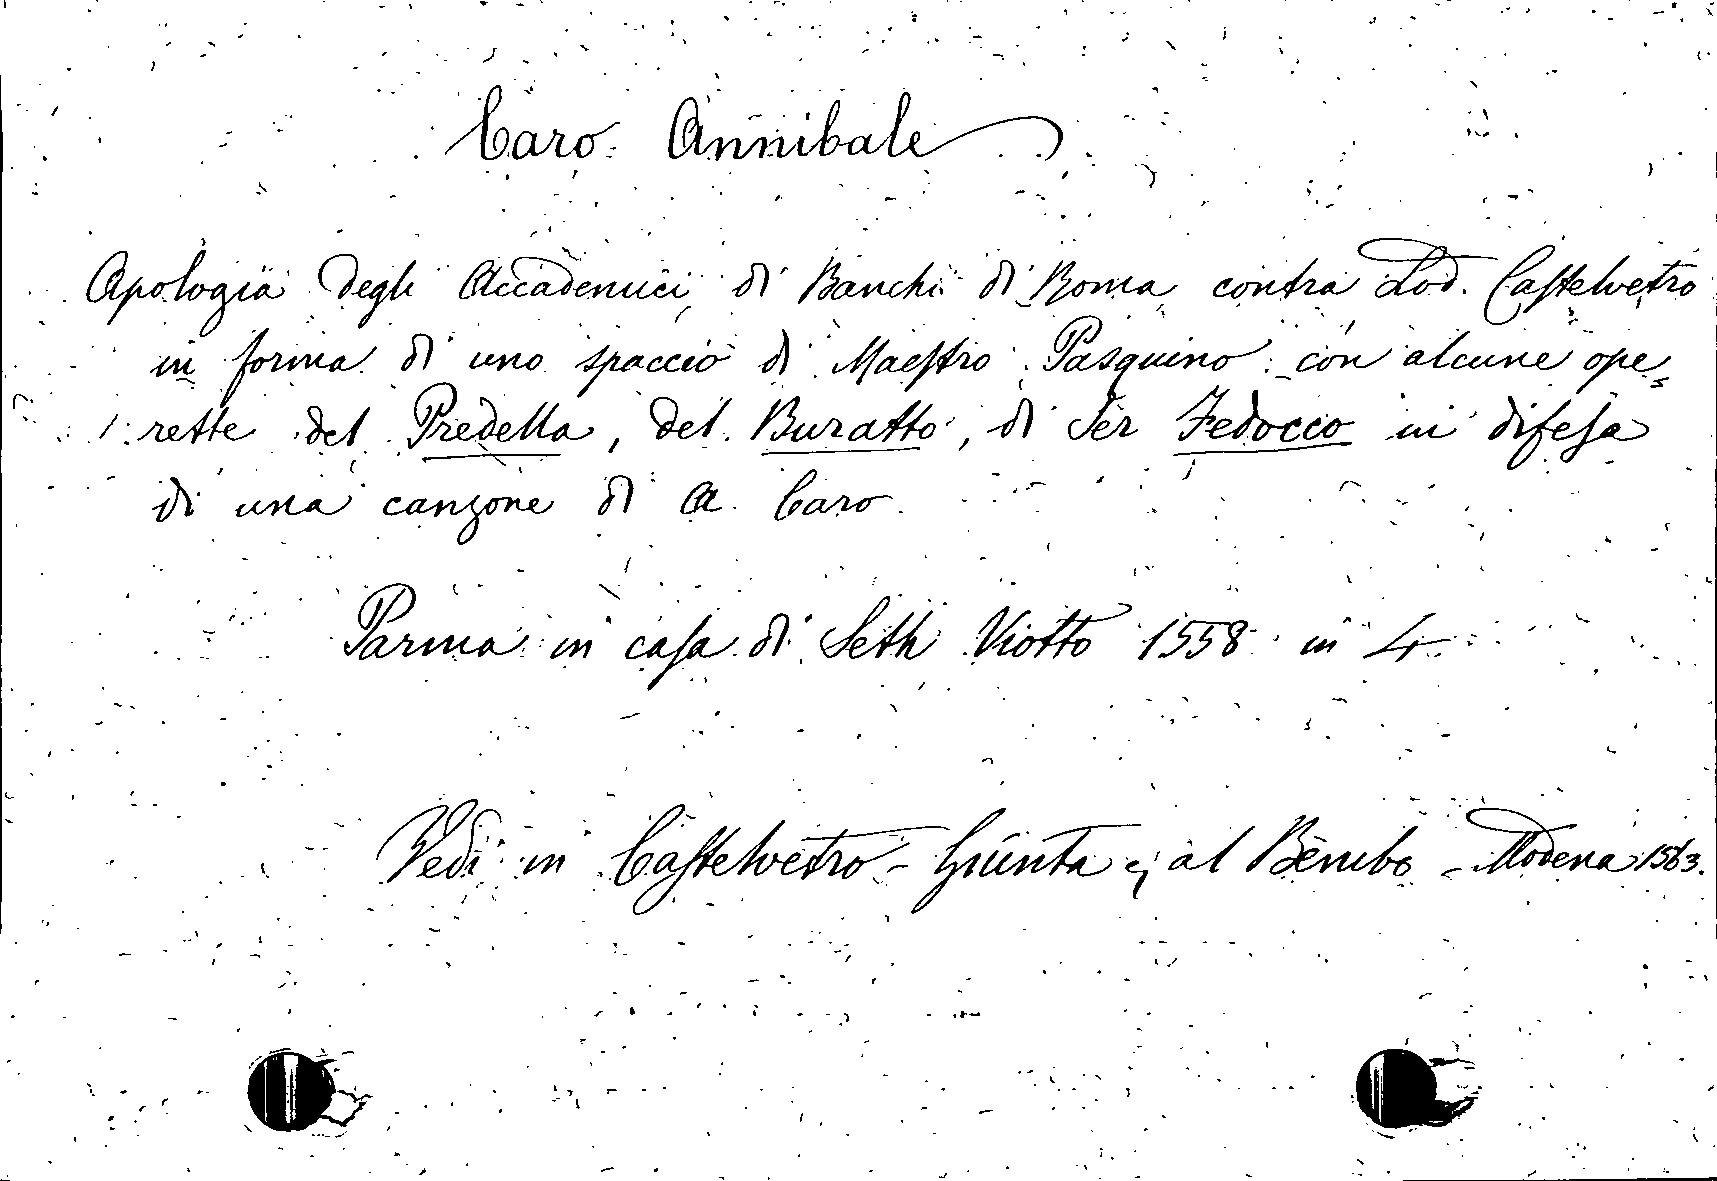 Caro Annibale
Apologia degli Accademici di Banchi di Roma contra Lod. Castelvetro
in forma di uno spaccio di Maestro Pasquino con alcune ope=
rette del Predella, del Buratto, di Ser Fedocco in difesa
di una canzone di A. Caro.
Parma in casa di Seth Viotto 1558 in 4
Vedi in Castelvetro - Giunta al Bembo - Modena 1563.